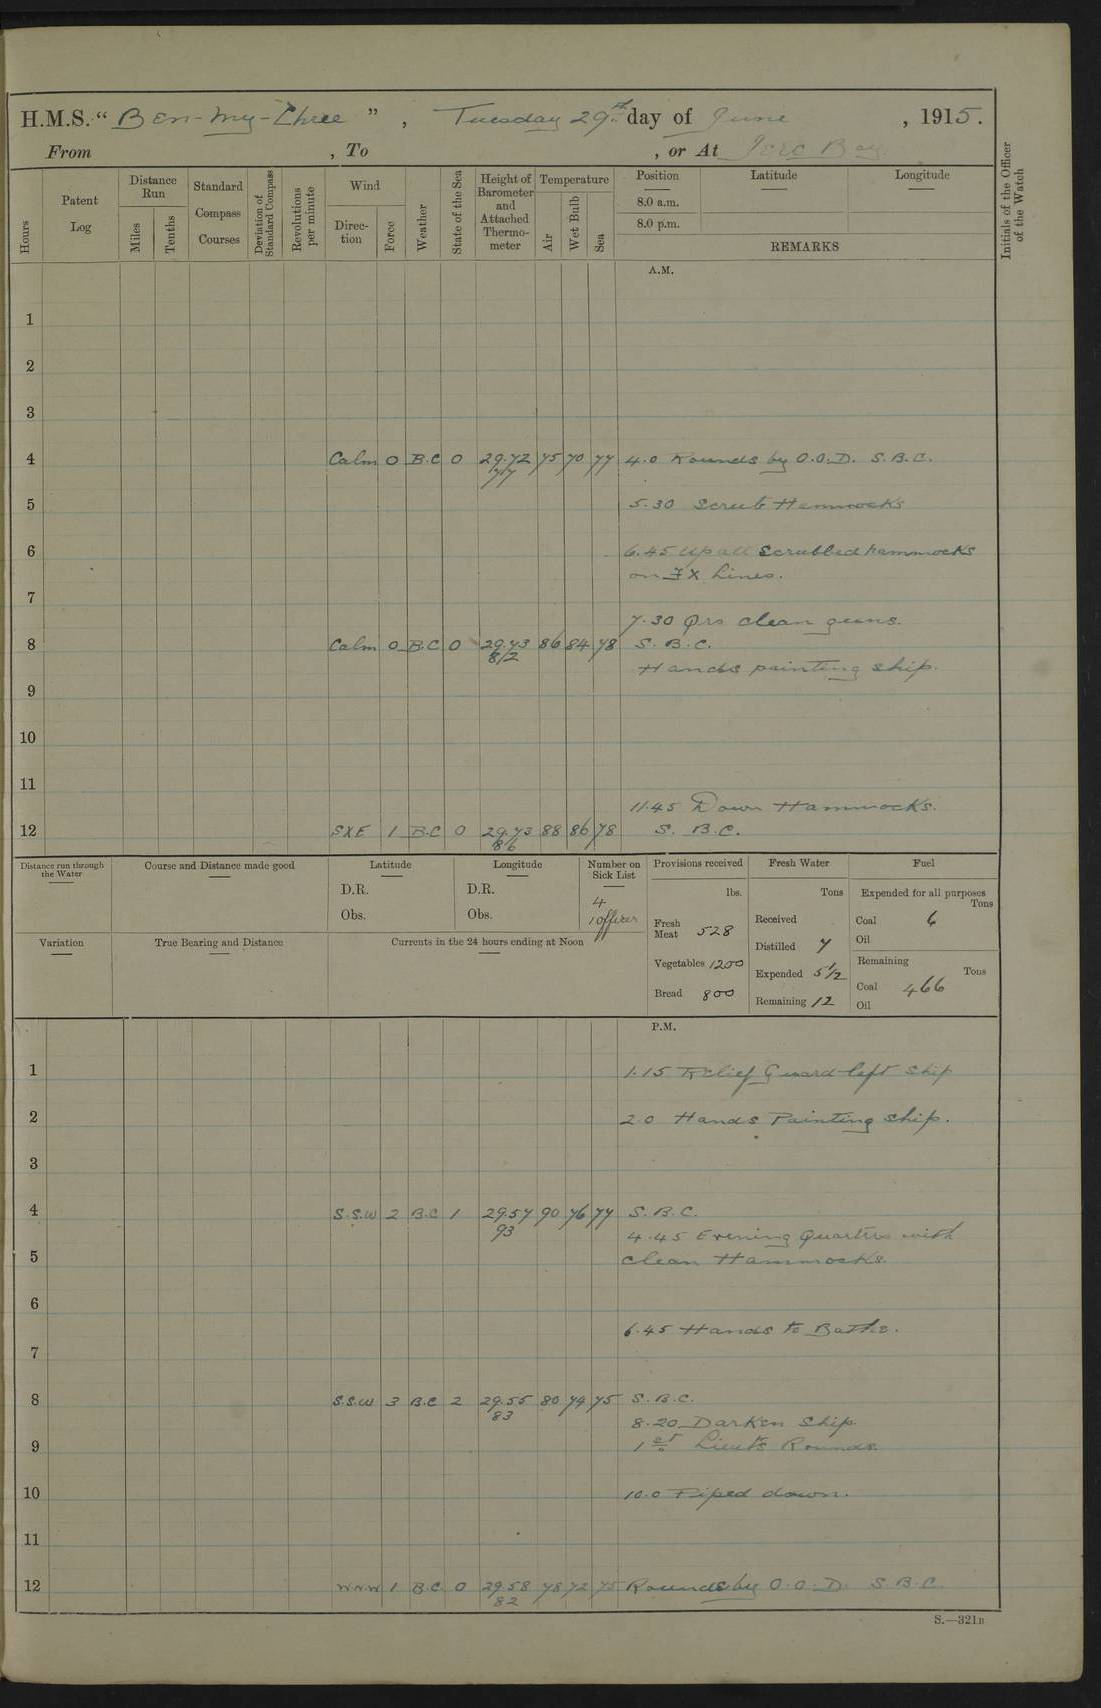 H.M.S. “ Ben-my-Chree ” , Tuesday 29th day of June , 1915.
From , To , or At Iero Bay
Hours
Patent Log
Distance Run
Miles
Tenths
Standard Compass Courses
Deviation of Standard Compass
Revolutions per minute
Wind
Direction
Force
Weather
State of the Sea
Height of Barometer and Attached Thermometer
Temperature
Air
Wet Bulb
Sea
Position
8.0 a.m.
8.0 p.m.
Latitude
Longitude
REMARKS
Initials of the Officer of the Watch
A.M.
1
2
3
4 Calm 0 B.C 0 29.72 75 70 77 4.0 Rounds by O.O.D. S.B.C.
77
5 5.30 Scrub Hammocks
6 6.45 Up all scrubbed hammocks
on FX Lines.
7
7.30 Qrs clean guns.
8 Calm 0 B.C 0 29.73 86 84 78 S.B.C.
82
Hands painting ship.
9
10
11
11.45 Down Hammocks.
12 SXE 1 B.C 0 29.73 88 86 78 S. B.C.
86
Distance run through the Water
Course and Distance made good
Latitude
D.R.
Obs.
Longitude
D.R.
Obs.
Number on Sick List
4
1 officer
Provisions received
lbs.
Fresh Meat 528
Vegetables 1200
Bread 800
Fresh Water
Tons
Received
Distilled 7
Expended 5 1/2
Remaining 12
Fuel
Expended for all purposes
Tons
Coal 6
Oil
Remaining
Tons
Coal 466
Oil
Variation
True Bearing and Distance
Currents in the 24 hours ending at Noon
P.M.
1 1.15 Relief Guard left ship
2 2.0 Hands Painting ship.
3
4 S.S.W 2 B.C 1 29.57 90 76 77 S.B.C.
93
4.45 Evening Quarters with
5 clean Hammocks.
6
6.45 Hands to Bathe.
7
8 S.S.W 3 B.C 2 29.55 80 74 75 S.B.C.
83
8.20 Darken Ship.
9 1st Lieuts Rounds.
10 10.0 Piped down.
11
12 W.N.W 1 B.C. 0 29.58 78 72 75 Rounds by O.O.D. S.B.C.
82
S.—321B